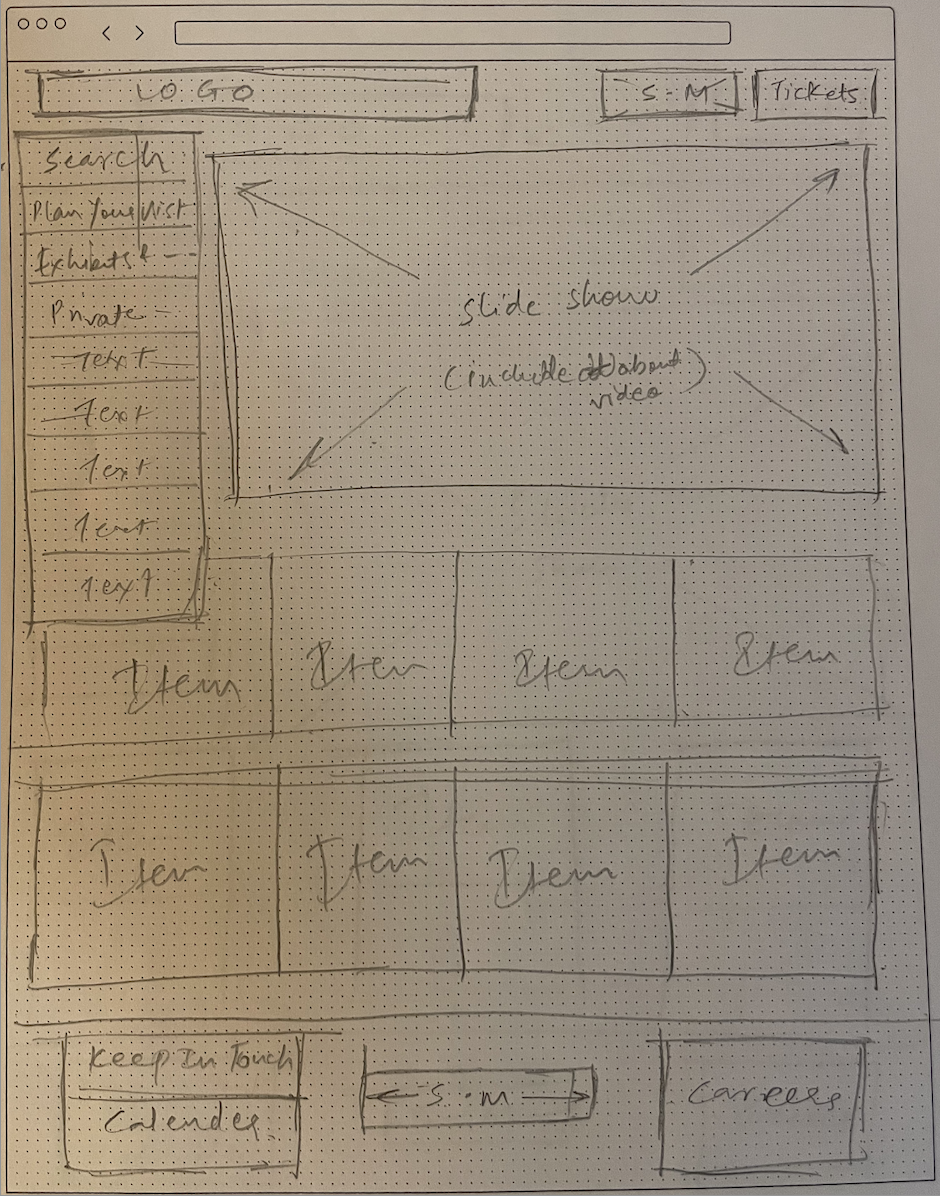 LOGO
S-M
Tickets
Search
Plan Your Visit
Exhibits & --
Private -
Text
Text
Text
Text
Text
slide show
(include about
video)
Item
Item
Item
Item
Item
Item
Item
Item
Keep In Touch
Calender
S.m
Careers